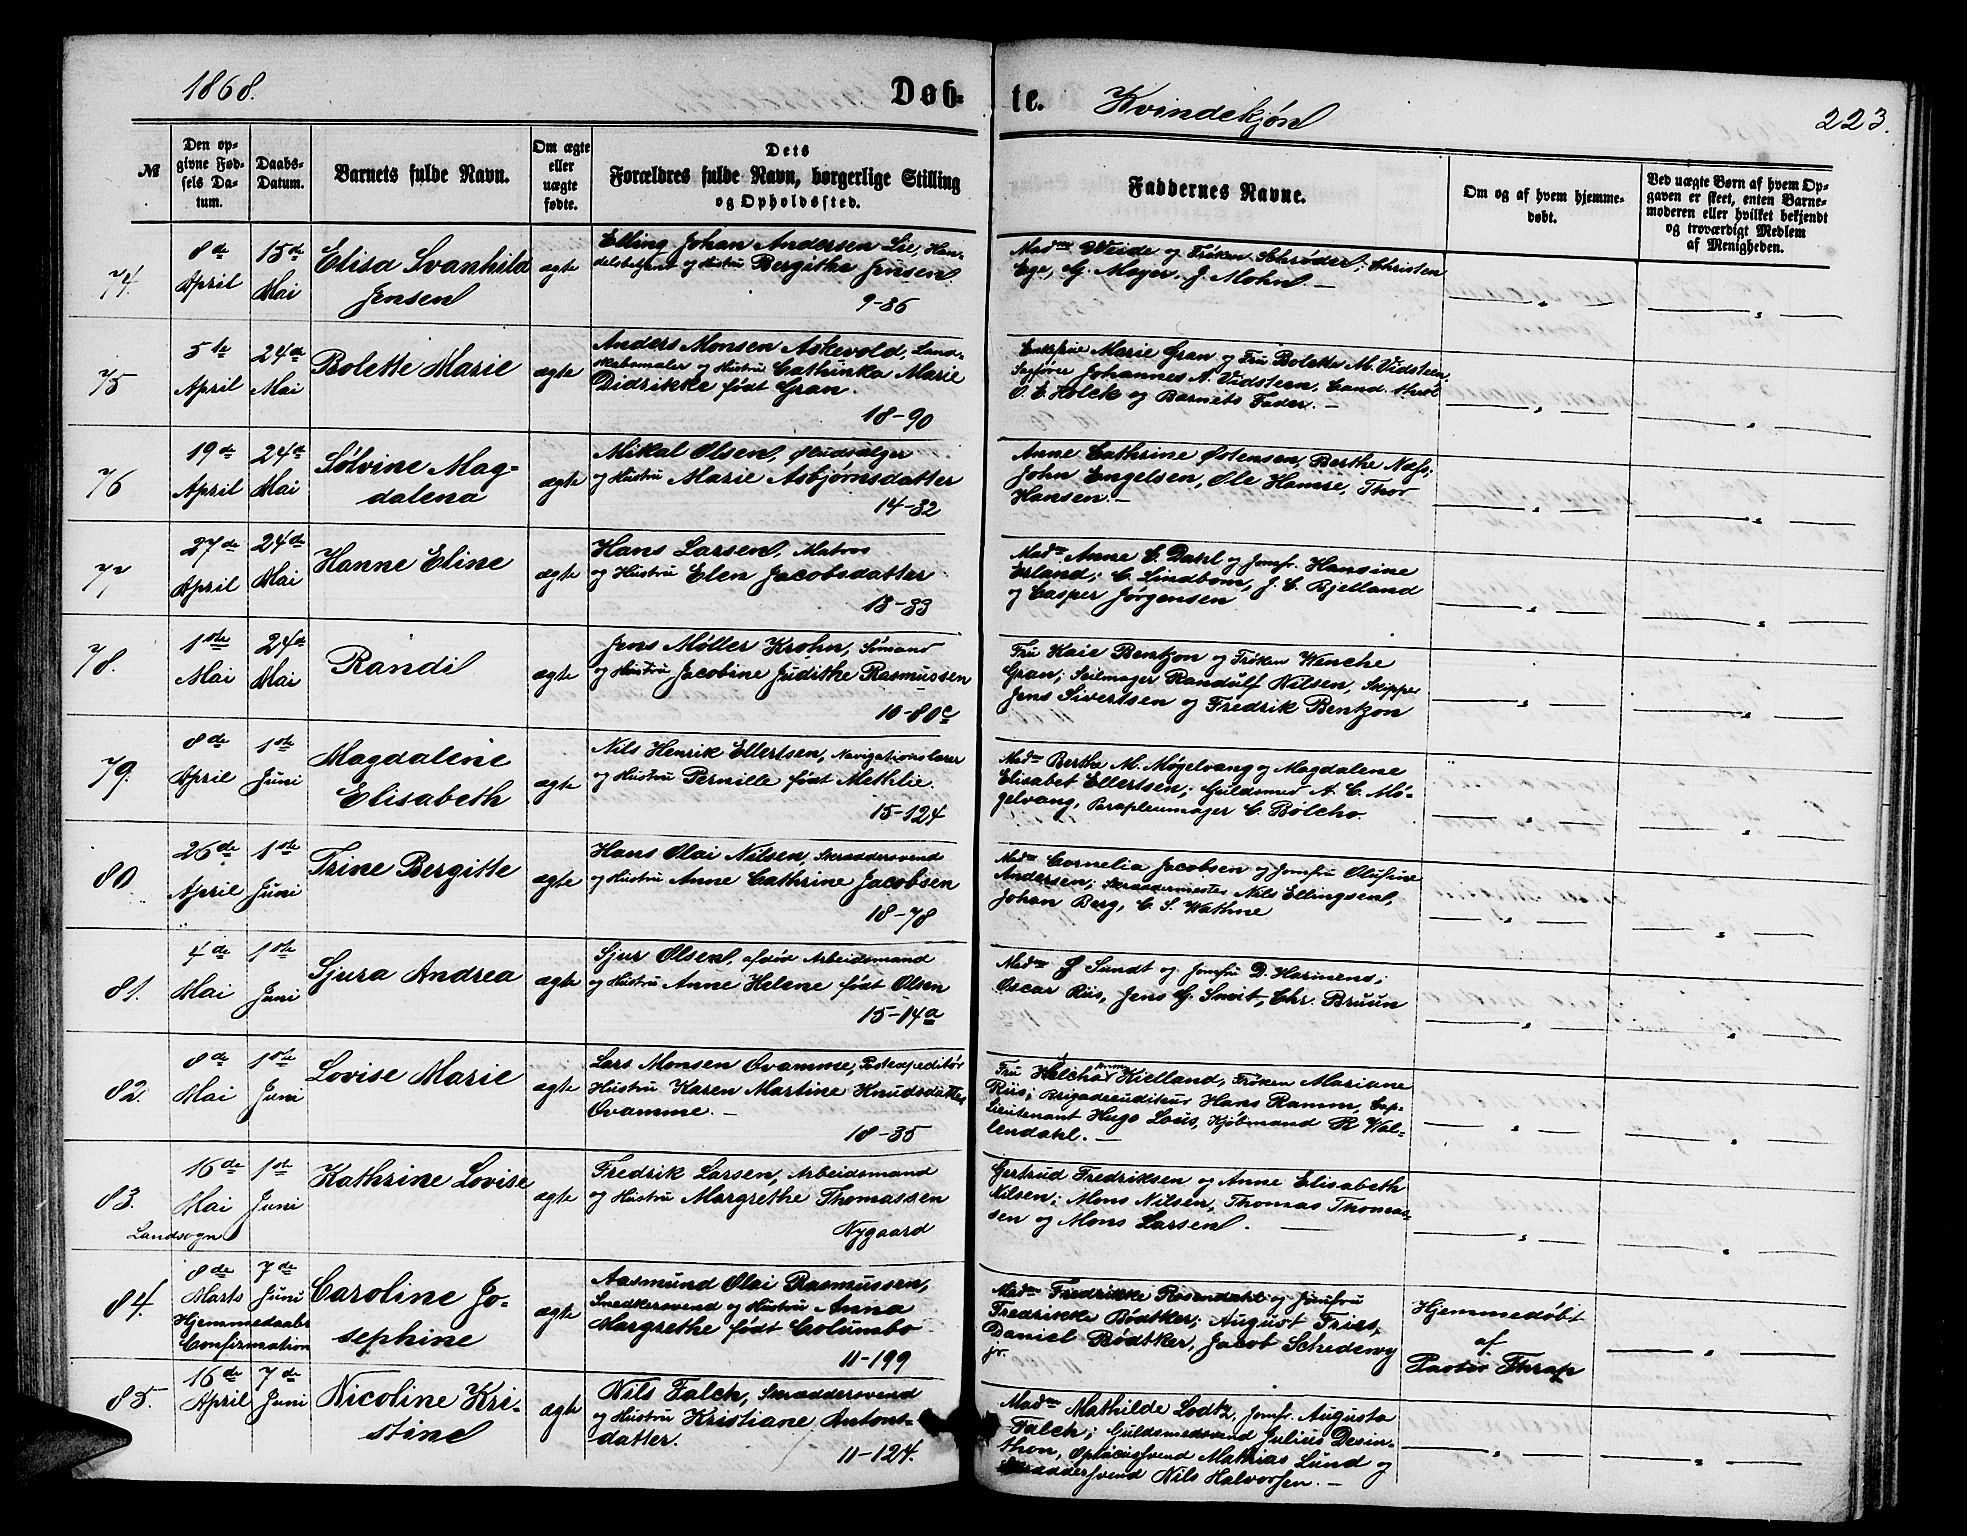 1868.
Døb-
te. Kvindekjøn
223.
№
Den op-
givne Fød-
sels Da-
tum.
Daabs-
Datum.
Barnets fulde Navn.
Om ægte
eller
uægte
fødte.
Dets
Forældres fulde Navn, borgerlige Stilling
og Opholdssted.
Faddernes Navne.
Om og af hvem hjemme-
døbt.
Ved uægte Børn af hvem Op-
gaven er skeet, enten Barne-
moderen eller hvilket bekjendt
og troværdigt Medlem
af Menigheden.
74.
8de
April
15de
Mai
Elisa Svanhild
Jensen
ægte
Elling Johan Andersen Lie, Han-
delsbetjent og Hustru Bergithe Jensen.
9-86
Madme Weide og Frøken Schrøder; Christen
Ege, G. Mayer, J. Mohn. —
75
5te
April
24de
Mai
Bolette Marie
ægte
Anders Monsen Askevold, Land-
skabsmaler og Hustru Cathinka Marie
Didrikke født Gran.
18-90
Enkefrue Marie Gran og Fru Bolette M. Vidsteen,
Sagfører Johannes N. Vidsteen, Cand. theol.
O. E. Holck og Barnets Fader. —
76
19de
April
24de
Mai
Sølvine Mag-
dalena
ægte
Mikal Olsen,
og Hustru Marie Asbjørnsdatter
14-32
Anne Cathrine Østensen, Berthe Næss;
John Engelsen, Ole Hamre, Thor
Hansen. —
77
27de
April
24de
Mai
Hanne Eline
ægte
Hans Larsen, Matros
og Hustru Elen Jacobsdatter
13-33
Madm Anne C. Dahl og Jomfr. Hansine
Erland; C. Lindbom, J. C. Bjelland
og Casper Jørgensen
78.
1ste
Mai
24de
Mai
Randi
ægte
Jens Møller Krohn, Sømand
og Hustru Jacobine Judithe Rasmussen
10-80c
Fru Kaie Bentzon og Frøken Wenche
Gran; Seilmager Randulf Nilsen, Skipper
Jens Sivertsen og Fredrik Bentzon
79.
8de
April
1ste
Juni
Magdalene
Elisabeth
ægte
Nils Henrik Ellertsen, Navigationslærer
og Hustru Pernille født Methlie.
15-124
Madm Berthe M. Møgelvang og Magdalene
Elisabet Ellertsen; Guldsmed A. C. Mø-
gelvang, Parapleumager C. Bolcho.
80.
26de
April
1ste
Juni
Trine Bergitte
ægte
Hans Olai Nilsen, Skræddersvend
og Hustru Anne Cathrine Jacobsen
18-78
Madm Cornelia Jacobsen og Jomfru Olufine
Andersen; Skræddermester Nils Ellingsen,
Johan Berg, C. S. Wathne
81.
4de
Mai
1ste
Juni
Sjura Andrea
ægte
Sjur Olsen, afdød Arbeidsmand
og Hustru Anne Helene født Olsen
15-14a
Madm J Sundt og Jomfru D. Harmens;
Oscar Riis, Jens G. Smit, Chr. Bruun
82.
8de
Mai
1ste
Juni
Lovise Marie
ægte
Lars Monsen Øvamme, Postexpeditør
Hustru Karen Martine Knudsdatter
Øvamme. —
18-35
Fru Kielland, Frøken Mariane
Riis; Brigadeauditeur Hans Ramm, Cap-
Lieutenant Hugo Lous, Kjøbmand R Wal-
lendahl. —
83.
Landsogn
16de
Mai
1ste
Juni
Kathrine Lovise
ægte
Fredrik Larsen, Arbeidsmand
og Hustru Margrethe Thomassen
Nygaard
Gertrud Fredriksen og Anne Elisabeth
Nilsen; Mons Nilsen, Thomas Thomas-
sen og Mons Larsen. —
84.
8de
Marts
7de
Juni
Hjemmedaabs
Confirmation
Caroline Jo-
sephine
ægte
Aasmund Olai Rasmussen,
Snedkersvend og Hustru Anna
Margrethe født Columbo
11-199
Madm Fredrikke Rosendahl og Jomfru
Fredrikke Bødtker; August Friis,
Daniel Bødtker, Jacob Schederwy
jr.
Hjemmedøbt
af
Pastor Thrap
85.
16de
April
7de
Juni
Nicoline Kri-
stine
ægte
Nils Falch, Skræddersvend
og Hustru Kristiane Antons-
datter.
11-124.
Madm Mathilde Lodtz, Jomfr. Augusta
Falch; Guldsmedsvend Julius Desin-
thon, Mathias Lund og
Skræddersvend Nils Halvorsen. —